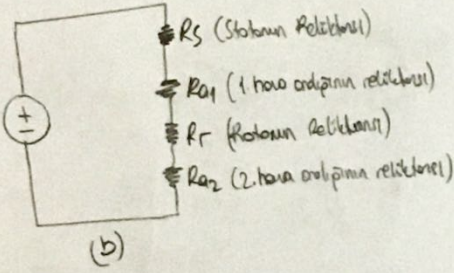 Rs (Statorun Relüktansı)
Ra1 (1. hava aralığının relüktansı)
Rr (Rotorun Relüktansı)
Ra2 (2. hava aralığının relüktansı)
(b)